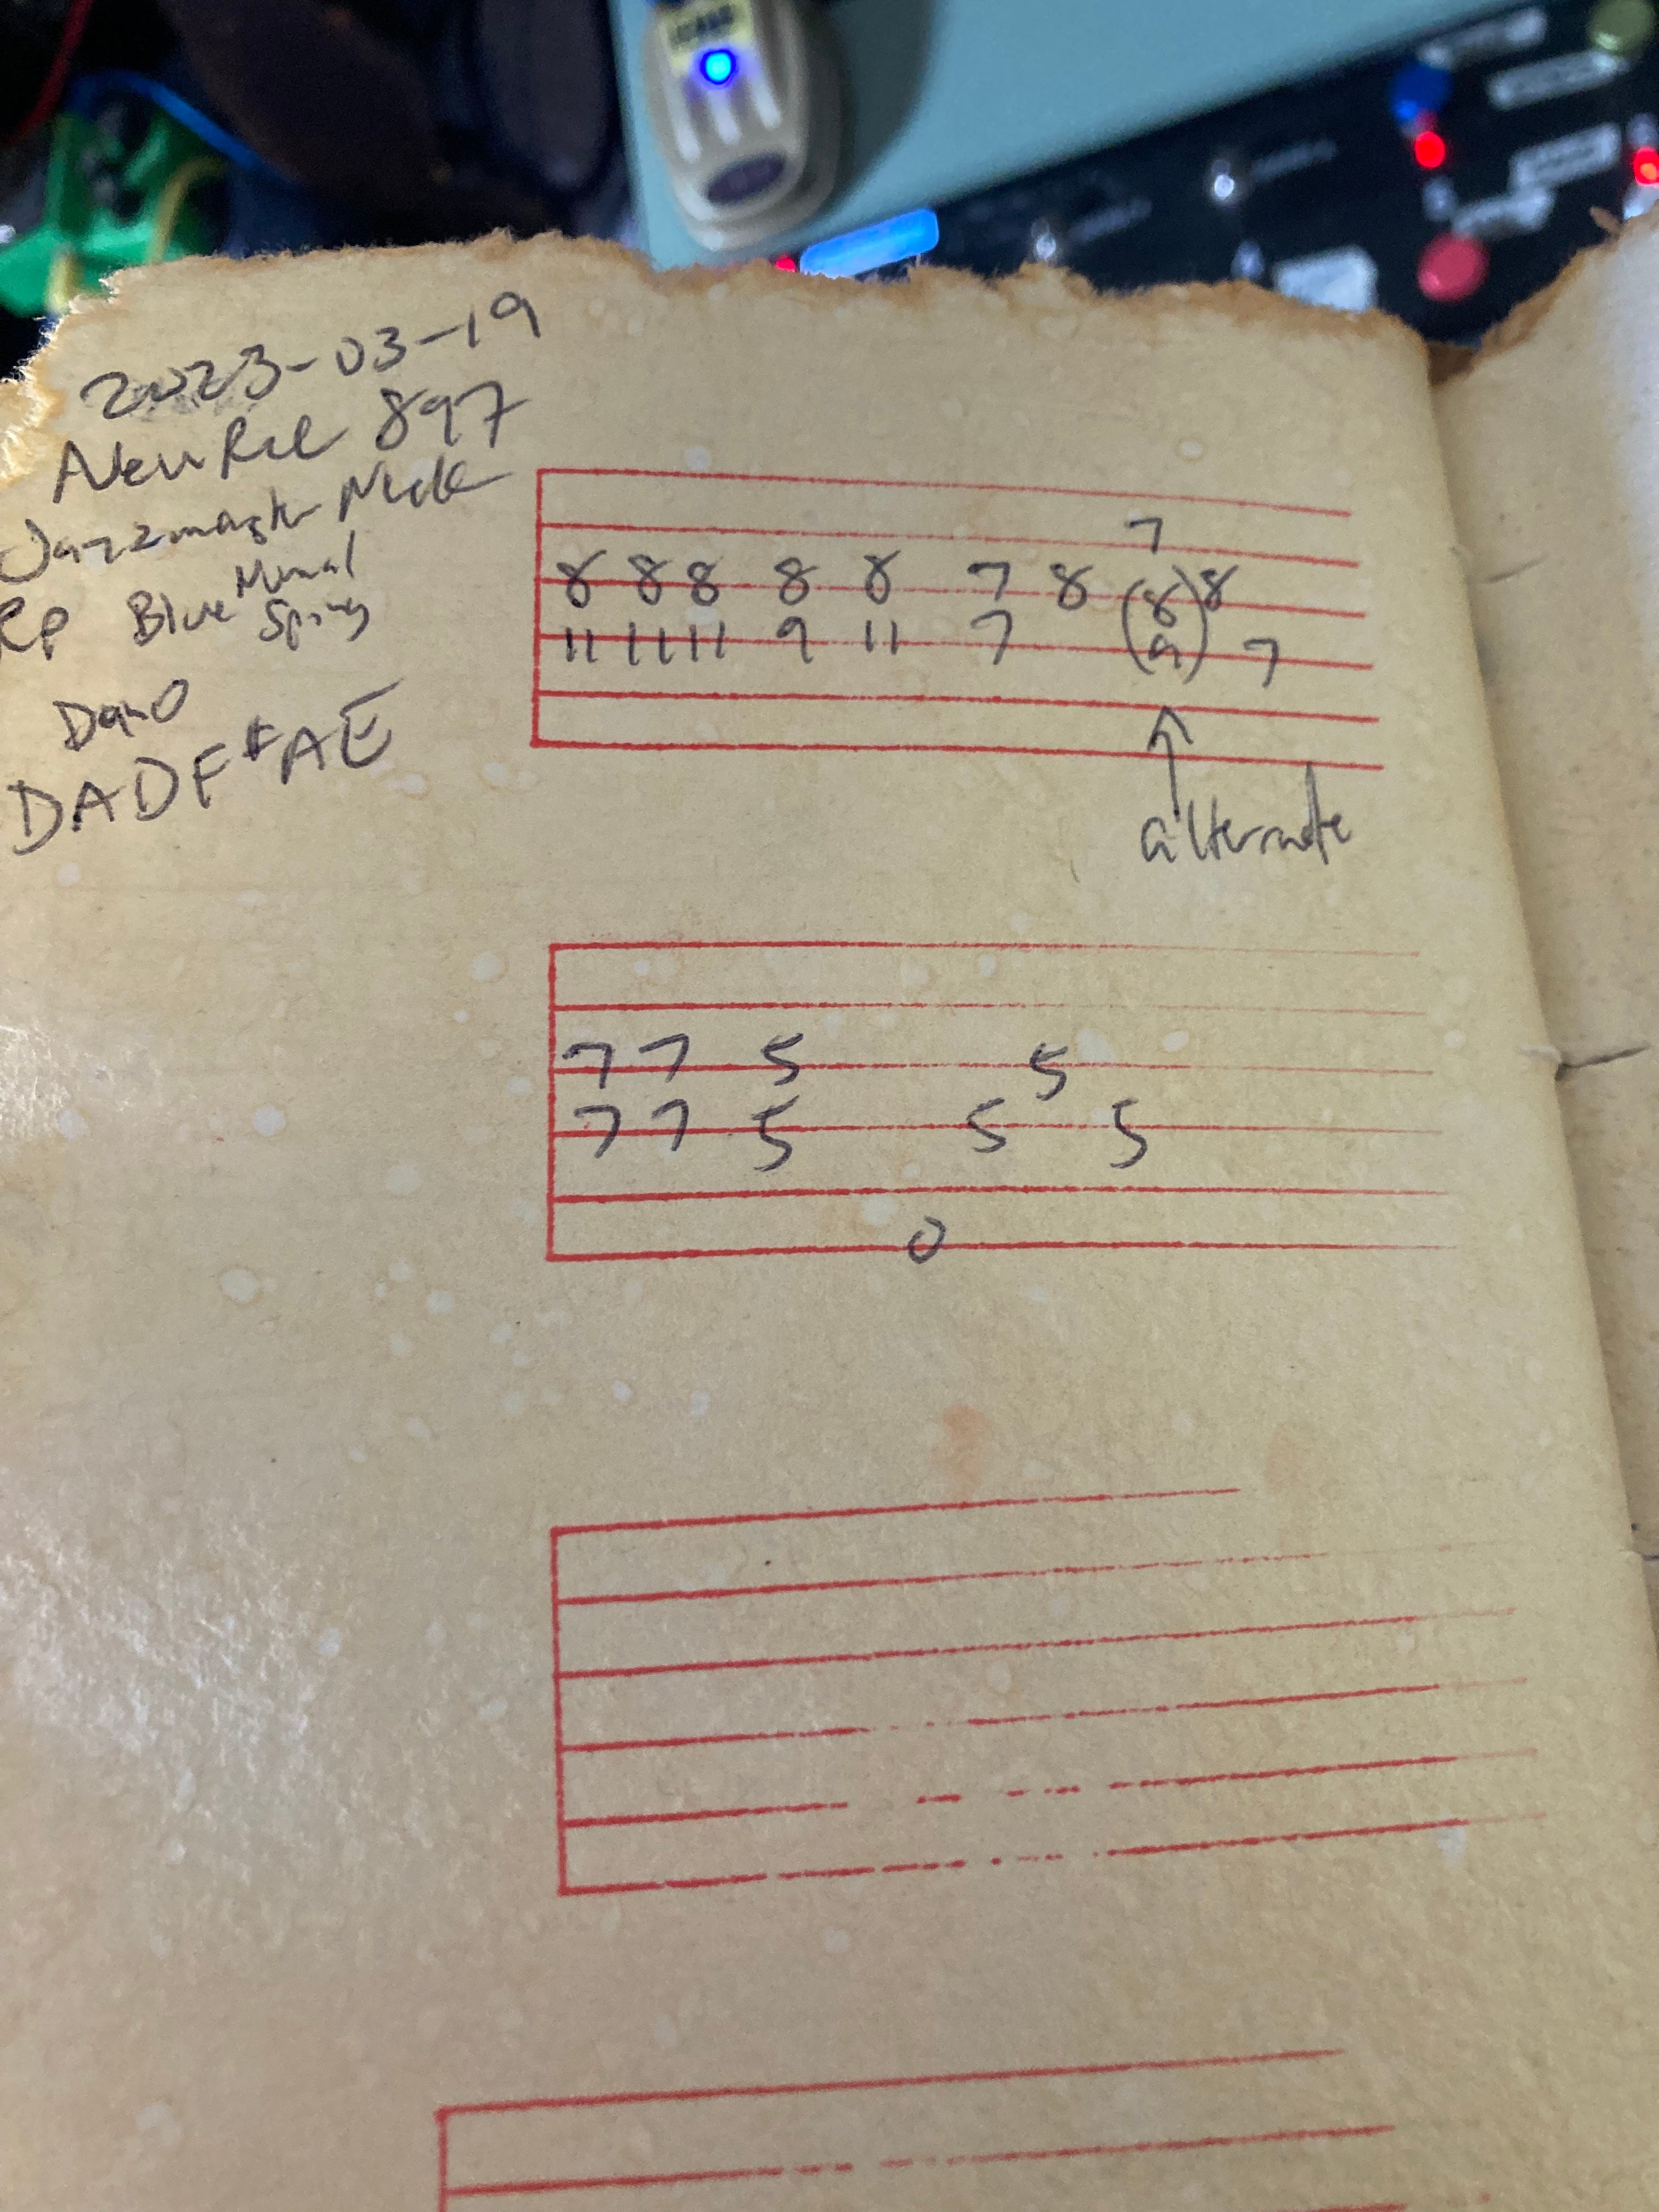 2023-03-19
897
Jazzmaster Neck
RP Blue Mural
Spring
Dano
DADF#AE
7
8 8 8 8 8 7 8 (8) 8
11 11 11 9 11 7 (9) 7
alternate
7 7 5 5
7 7 5 5 5
0